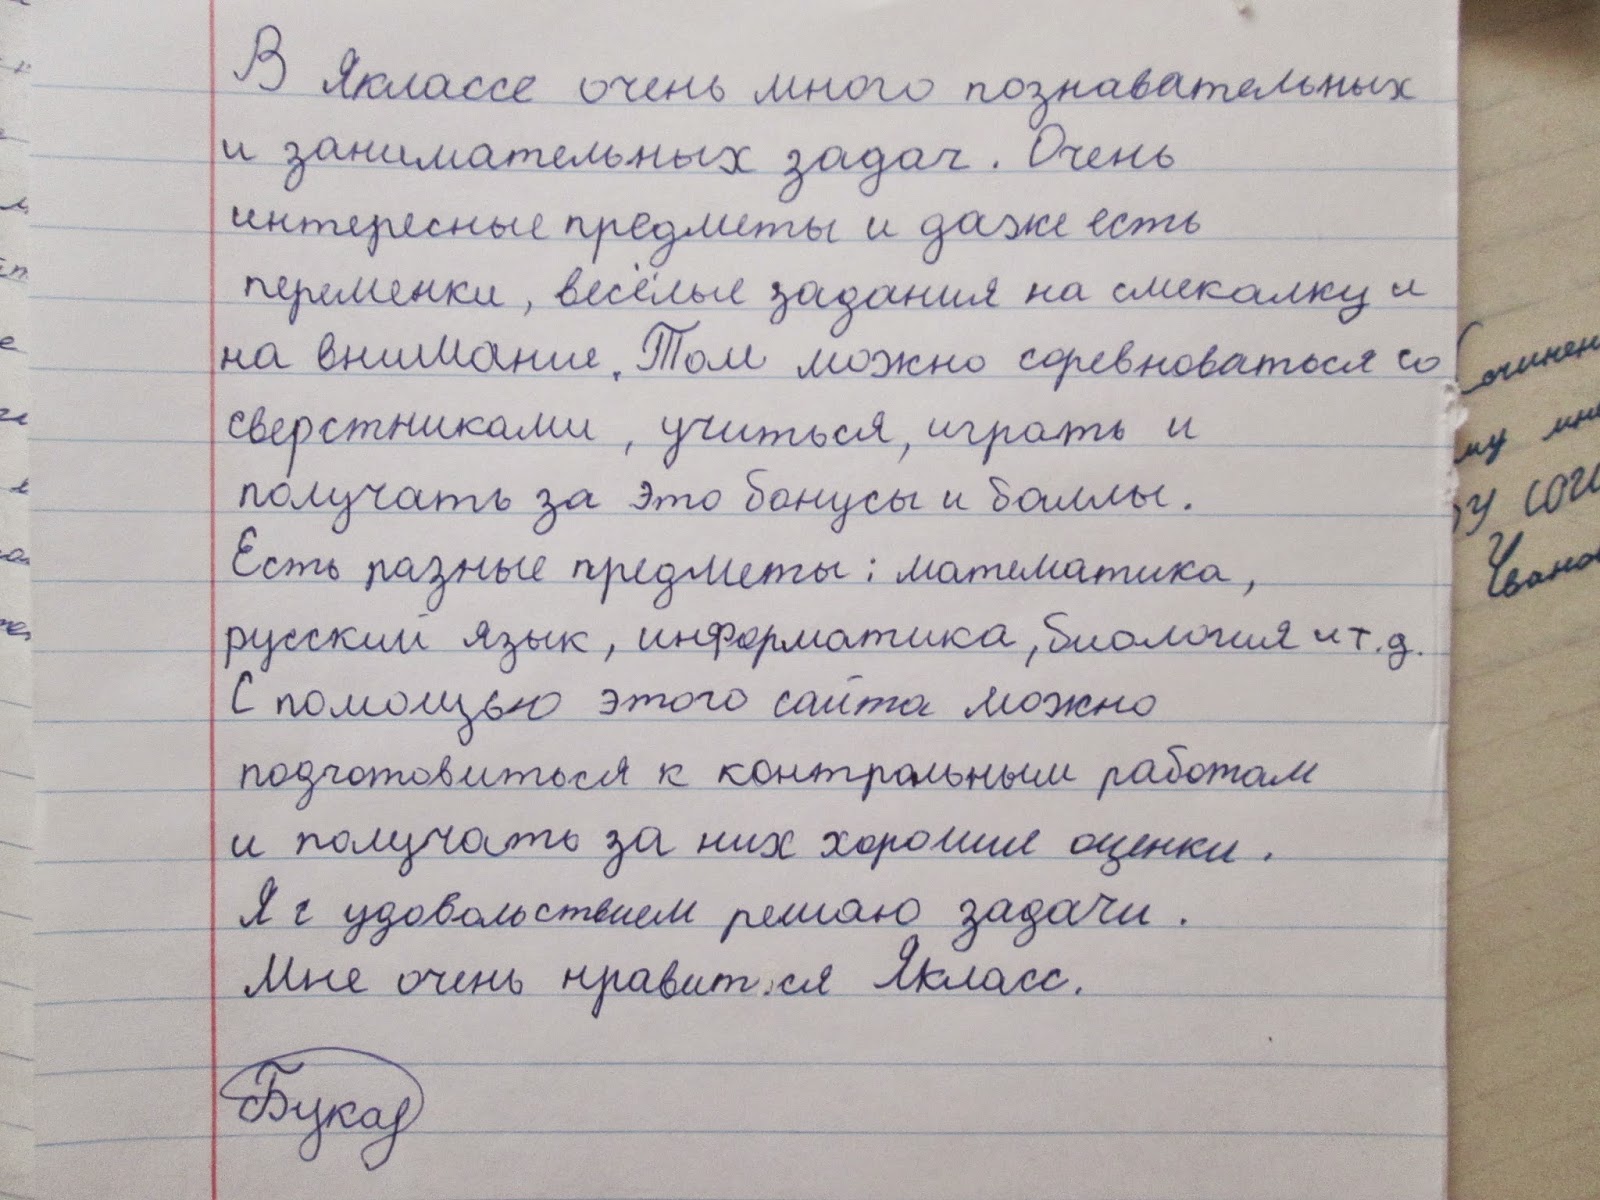 В Яклассе очень много познавательных
и занимательных задач. Очень
интересные предметы и даже есть
переменки, весёлые задания на смекалку и
на внимание. Там можно соревноваться со
сверстниками, учиться, играть и
получать за это бонусы и баллы.
Есть разные предметы: математика,
русский язык, информатика, биология и т.д.
С помощью этого сайта можно
подготовиться к контрольным работам
и получать за них хорошие оценки.
Я с удовольствием решаю задачи.
Мне очень нравится Якласс.